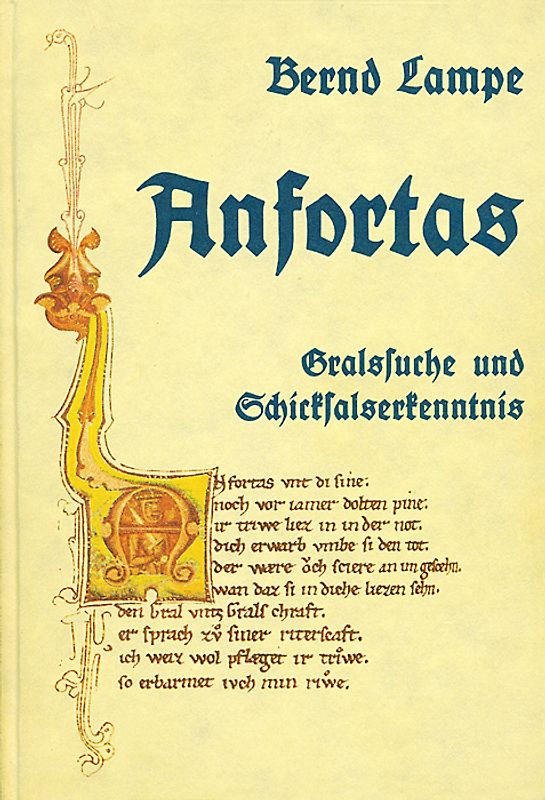 Bernd Lampe
Anfortas
Gralsſuche und
Schickſalserkenntnis
Anfortas vnt di sine.
noch vor iamer dolten pine.
ir triwe liez in in der not.
dich erwarb vmbe si den tot.
der wære ǒch sciere an un gescehn.
wan daz si in diche liezen sehn.
den Gral vntz Grals chraft.
er sprach zů siner riterscaft.
ich weiz wol pflæget ir trůwe.
so erbarmet ivch min riůwe.